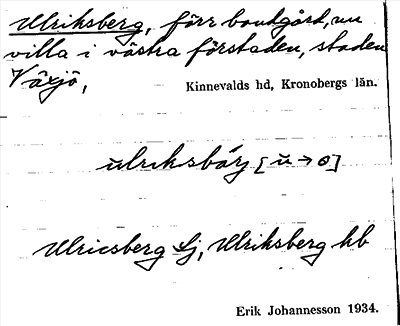 Ulriksberg, förr bondgård, nu
villa i västra förstaden, staden
Växjö,
Kinnevalds hd, Kronobergs län.
ŭlriksbärj [ŭ → o]
Ulricsberg Lj, Ulriksberg hb
Erik Johannesson 1934.